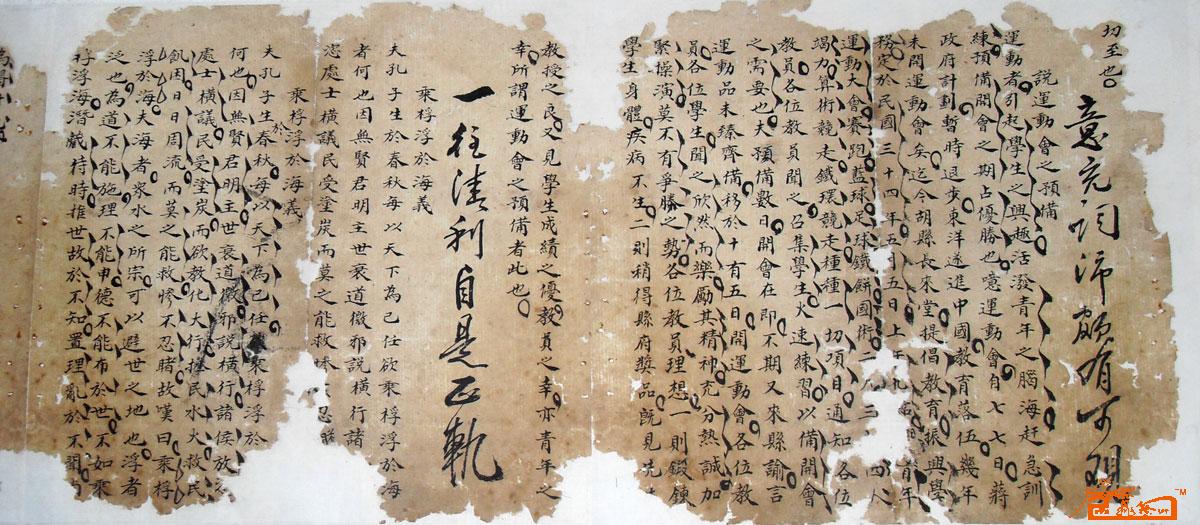 切至也
意充詞沛頗有可觀
說運動會之預備
運動者引起學生之興趣活潑青年之腦海赶急訓
練預備開會之期占優勝也意運動會自七七日蔣
政府計劃暫時退步東洋遂進中國教育落伍幾年
未開運動會矣迄今胡縣長來堂提倡教育振興學
務定於民國三十四年五月五日上午九
運動大會賽跑藍球足球鐵餅國術二八三四人
竭力算術競走鐵環競走種種一切項目通知各位
教員各位教員聞之召集學生火速練習以備開會
之需要也夫預備數日開會在即不期又來縣諭言
運動品未臻齊備移於十有五日開運動會各位教
員各位學生聞之欣然而樂勵其精神充分熱誠加
緊操演莫不有爭勝之勢各位教員理想一則鍛鍊
學生身體疾病不生二則稍得縣府獎品既見先
教授之良又見學生成績之優教員之幸亦青年之
幸所謂運動會之預備者此也
一往清利自是正軌
乘桴浮於海義
夫孔子生於春秋每以天下為己任欲乘桴浮於海
者何也因無賢君明主世衰道微邪說橫行諸
恣處士橫議民受塗炭而莫之能救 忍睹
乘桴浮於海義
夫孔子生於春秋每以天下為己任 乘桴浮於
何也因無賢君明主世衰道微邪說橫行諸侯放
處士橫議民受塗炭而欲教化大行拯民水火救民
飢因日日周流而莫之能救慘不忍睹故嘆曰乘桴
浮於海夫海者眾水之所宗可以避世之地也浮者
泛也為道不能施理不能申德不能布於世不如乘
桴浮海潛藏待時推世故於不知置理亂於不聞